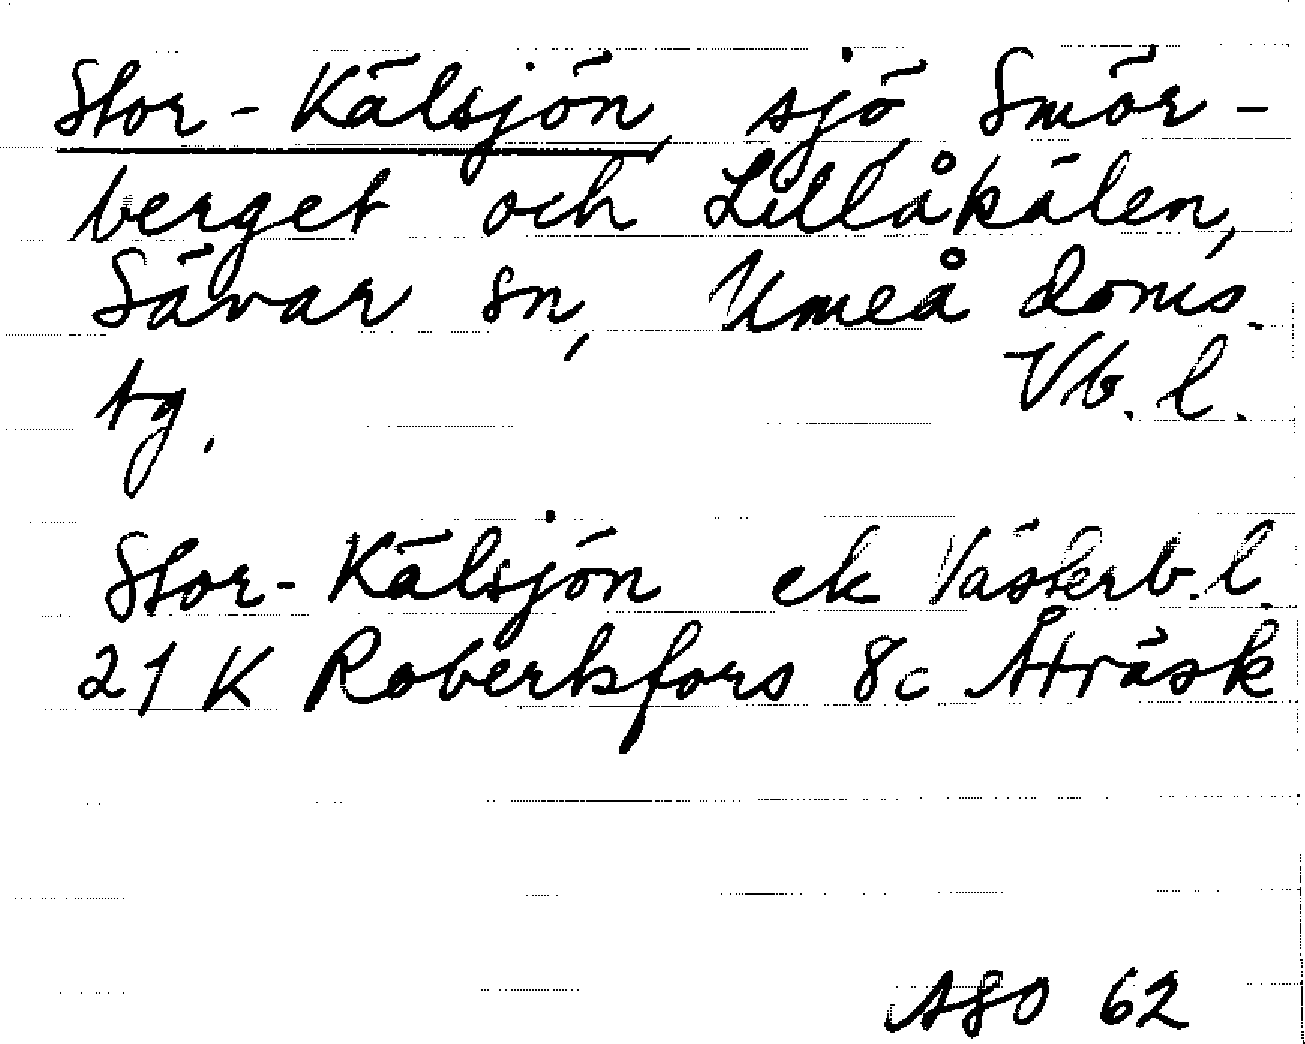 Stor-Kälsjön, sjö, Smör-
berget och Lillåkälen,
Sävar sn, Umeå doms.
tg. Vb. l.
Stor-Kälsjön ek Västerb. l.
21 K Robertsfors 8c Åträsk
ASO 62